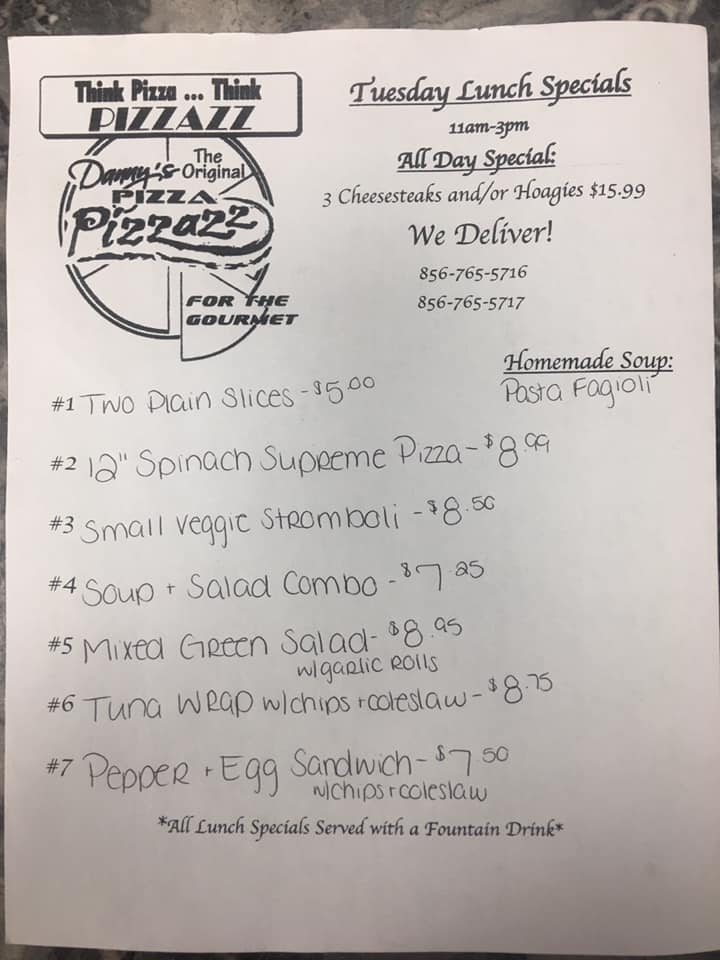 Think Pizza ... Think
PIZZAZZ
Danny's The Original
PIZZA
Pizzazz
FOR THE
GOURMET
Tuesday Lunch Specials
11am-3pm
All Day Special:
3 Cheesesteaks and/or Hoagies $15.99
We Deliver!
856-765-5716
856-765-5717
Homemade Soup:
Pasta Fagioli
#1 Two Plain Slices - $5.00
#2 12" Spinach Supreme Pizza - $8.99
#3 Small Veggie Stromboli - $8.50
#4 Soup + Salad Combo - $7.25
#5 Mixed Green Salad - $8.95
w/garlic Rolls
#6 Tuna Wrap w/chips + coleslaw - $8.75
#7 Pepper + Egg Sandwich - $7.50
w/chips + coleslaw
*All Lunch Specials Served with a Fountain Drink*